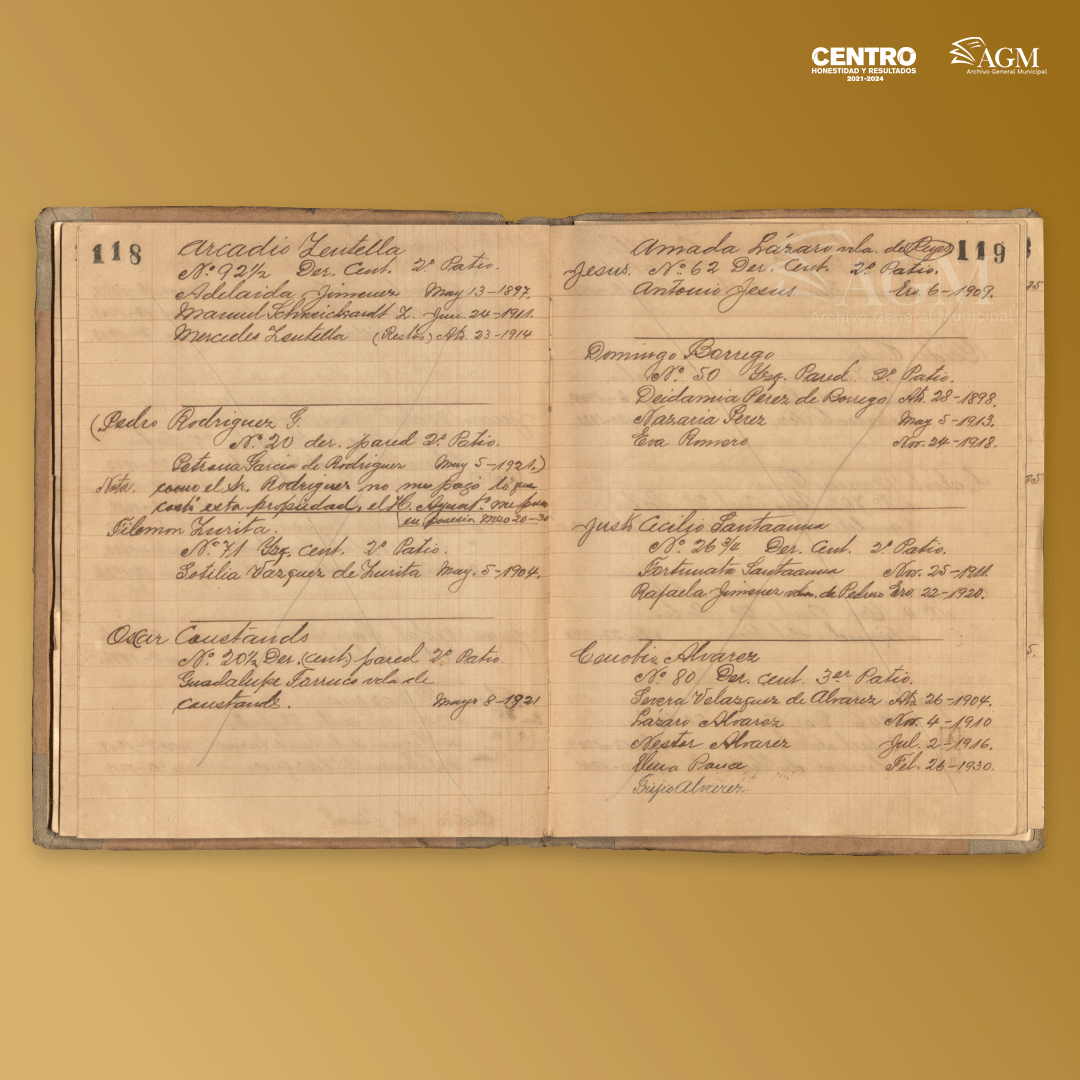 CENTRO
HONESTIDAD Y RESULTADOS
2021-2024
AGM
Archivo General Municipal
118
Arcadio Zentella
No. 92½ Der. Cent. 2º Patio.
Adelaida Jimenez May 13-1897.
Manuel Schneickardt Z. Jun. 24-1911.
Mercedes Zentella (Restos) Ab. 23-1914
(Pedro Rodriguez G.
No. 20 der. pared 2º Patio.
Petrona Garcia de Rodriguez May 5-1921.)
Nota. como el Sr. Rodriguez no me pagó lo que
costó esta propiedad, el H. Ayunt.º me puso
en posesión Mzo 20-30
Filemon Zurita.
No. 71 Yzq. cent. 2º Patio.
Sotilia Vazquez de Zurita May. 5-1904.
Oscar Coustands
No. 20½ Der. (cent.) pared 2º Patio.
Guadalupe Farruco vda de
Coustands. Mayo 8-1921
119
Amada Lázaro vda. de Reyes
Jesus. No. 62 Der. Cent. 2º Patio.
Antonio Jesus Ero. 6-1907.
AGM
Archivo General Municipal
Domingo Borrego
No. 50 Yzq. Pared 3º Patio.
Deidamia Pérez de Borrego Ab. 28-1898.
Nazaria Perez May 5-1913.
Eva Romero Nov. 24-1918.
Justo Cecilio Santaanna
No. 26 ¾ Der. Cent. 2º Patio.
Fortunata Santaanna Nov. 25-1911.
Rafaela Jimenez vda. de Pedrero Ero. 22-1920.
Cenobio Alvarez
No. 80 Der. cent. 3er Patio.
Severa Velazquez de Alvarez Ab. 26-1904.
Lázaro Alvarez Nov. 4-1910
Nestor Alvarez Jul. 2-1916.
Feb. 26-1930.
Alvarez